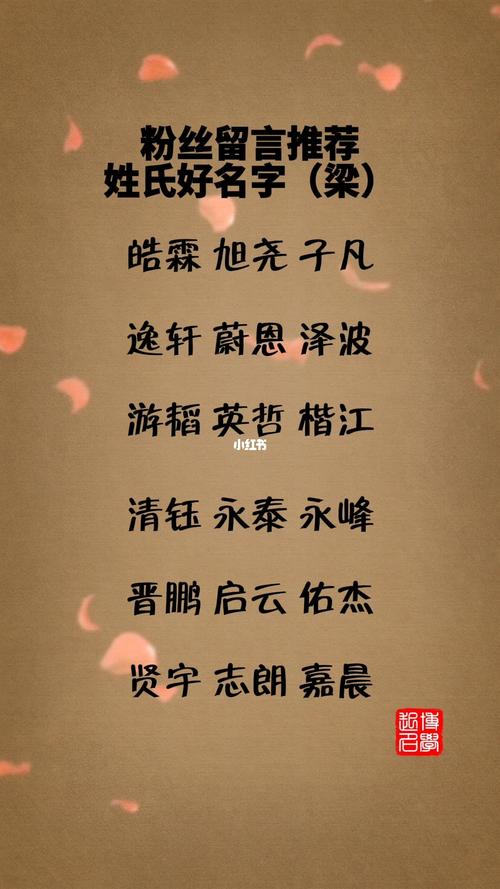 粉丝留言推荐
姓氏好名字（梁）
皓霖 旭尧 子凡
逸轩 蔚恩 泽波
游韬 英哲 楷江
小红书
清钰 永泰 永峰
晋鹏 启云 佑杰
贤宇 志朗 嘉晨
博學
起名